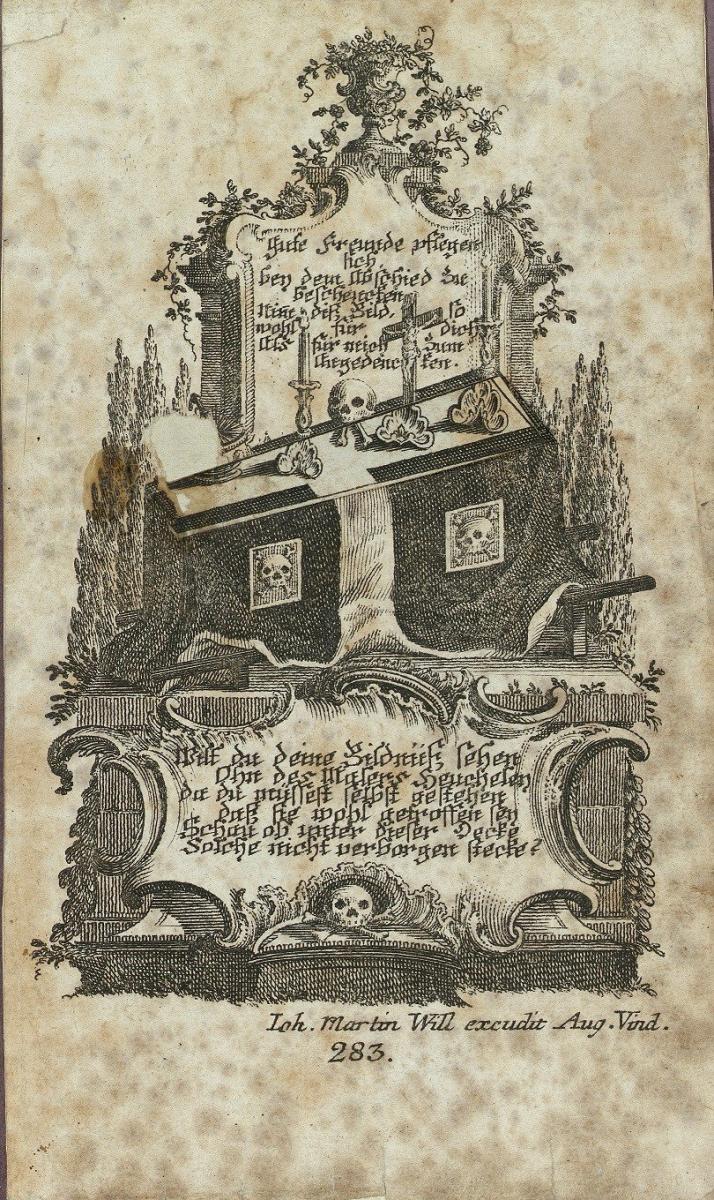 Gute Freunde pflegen
sich,
bey dem Abschied zu
beschencken,
Nim diß Bild, so
wohl für dich
Als für mich zum
Angedencken.
Wilt du deine Bildnüß sehen
Ohn des Malers Heucheley
da du müssest selbst gestehen
daß sie wohl getroffen sey
Schau ob unter dieser Decke
Solche nicht verborgen stecke?
Ioh. Martin Will excudit Aug. Vind.
283.